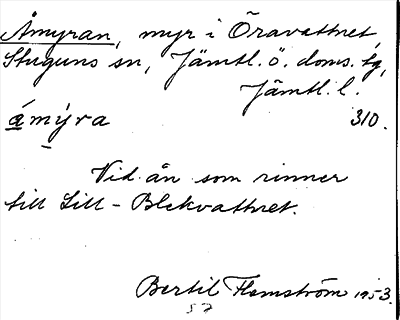 Åmyran, myr i Öravattnet,
Stuguns sn, Jämtl. ö. doms. tg,
Jämtl. l.
ámýra 310.
Vid ån som rinner
till Lill-Blekvattnet.
Bertil Flemström 1953.
57